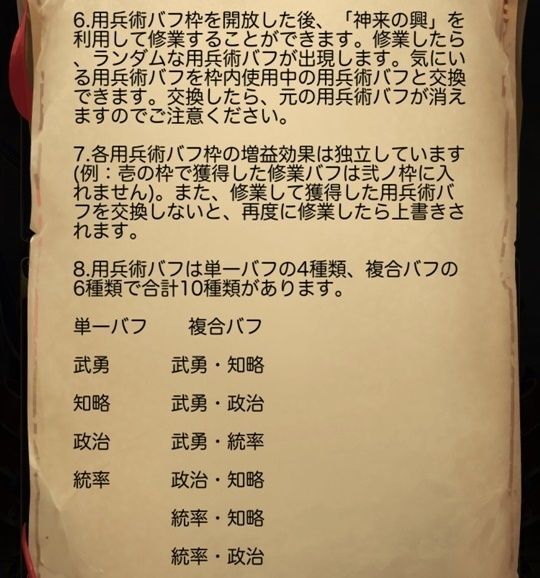 6.用兵術バフ枠を開放した後、「神来の興」を
利用して修業することができます。修業したら
、ランダムな用兵術バフが出現します。気にい
る用兵術バフを枠内使用中の用兵術バフと交換
できます。交換したら、元の用兵術バフが消え
ますのでご注意ください。
7.各用兵術バフ枠の増益効果は独立しています
(例：壱の枠で獲得した修業バフは弐ノ枠に入
れません)。また、修業して獲得した用兵術バ
フを交換しないと、再度に修業したら上書きさ
れます。
8.用兵術バフは単一バフの4種類、複合バフの
6種類で合計10種類があります。
単一バフ 複合バフ
武勇 武勇・知略
知略 武勇・政治
政治 武勇・統率
統率 政治・知略
統率・知略
統率・政治